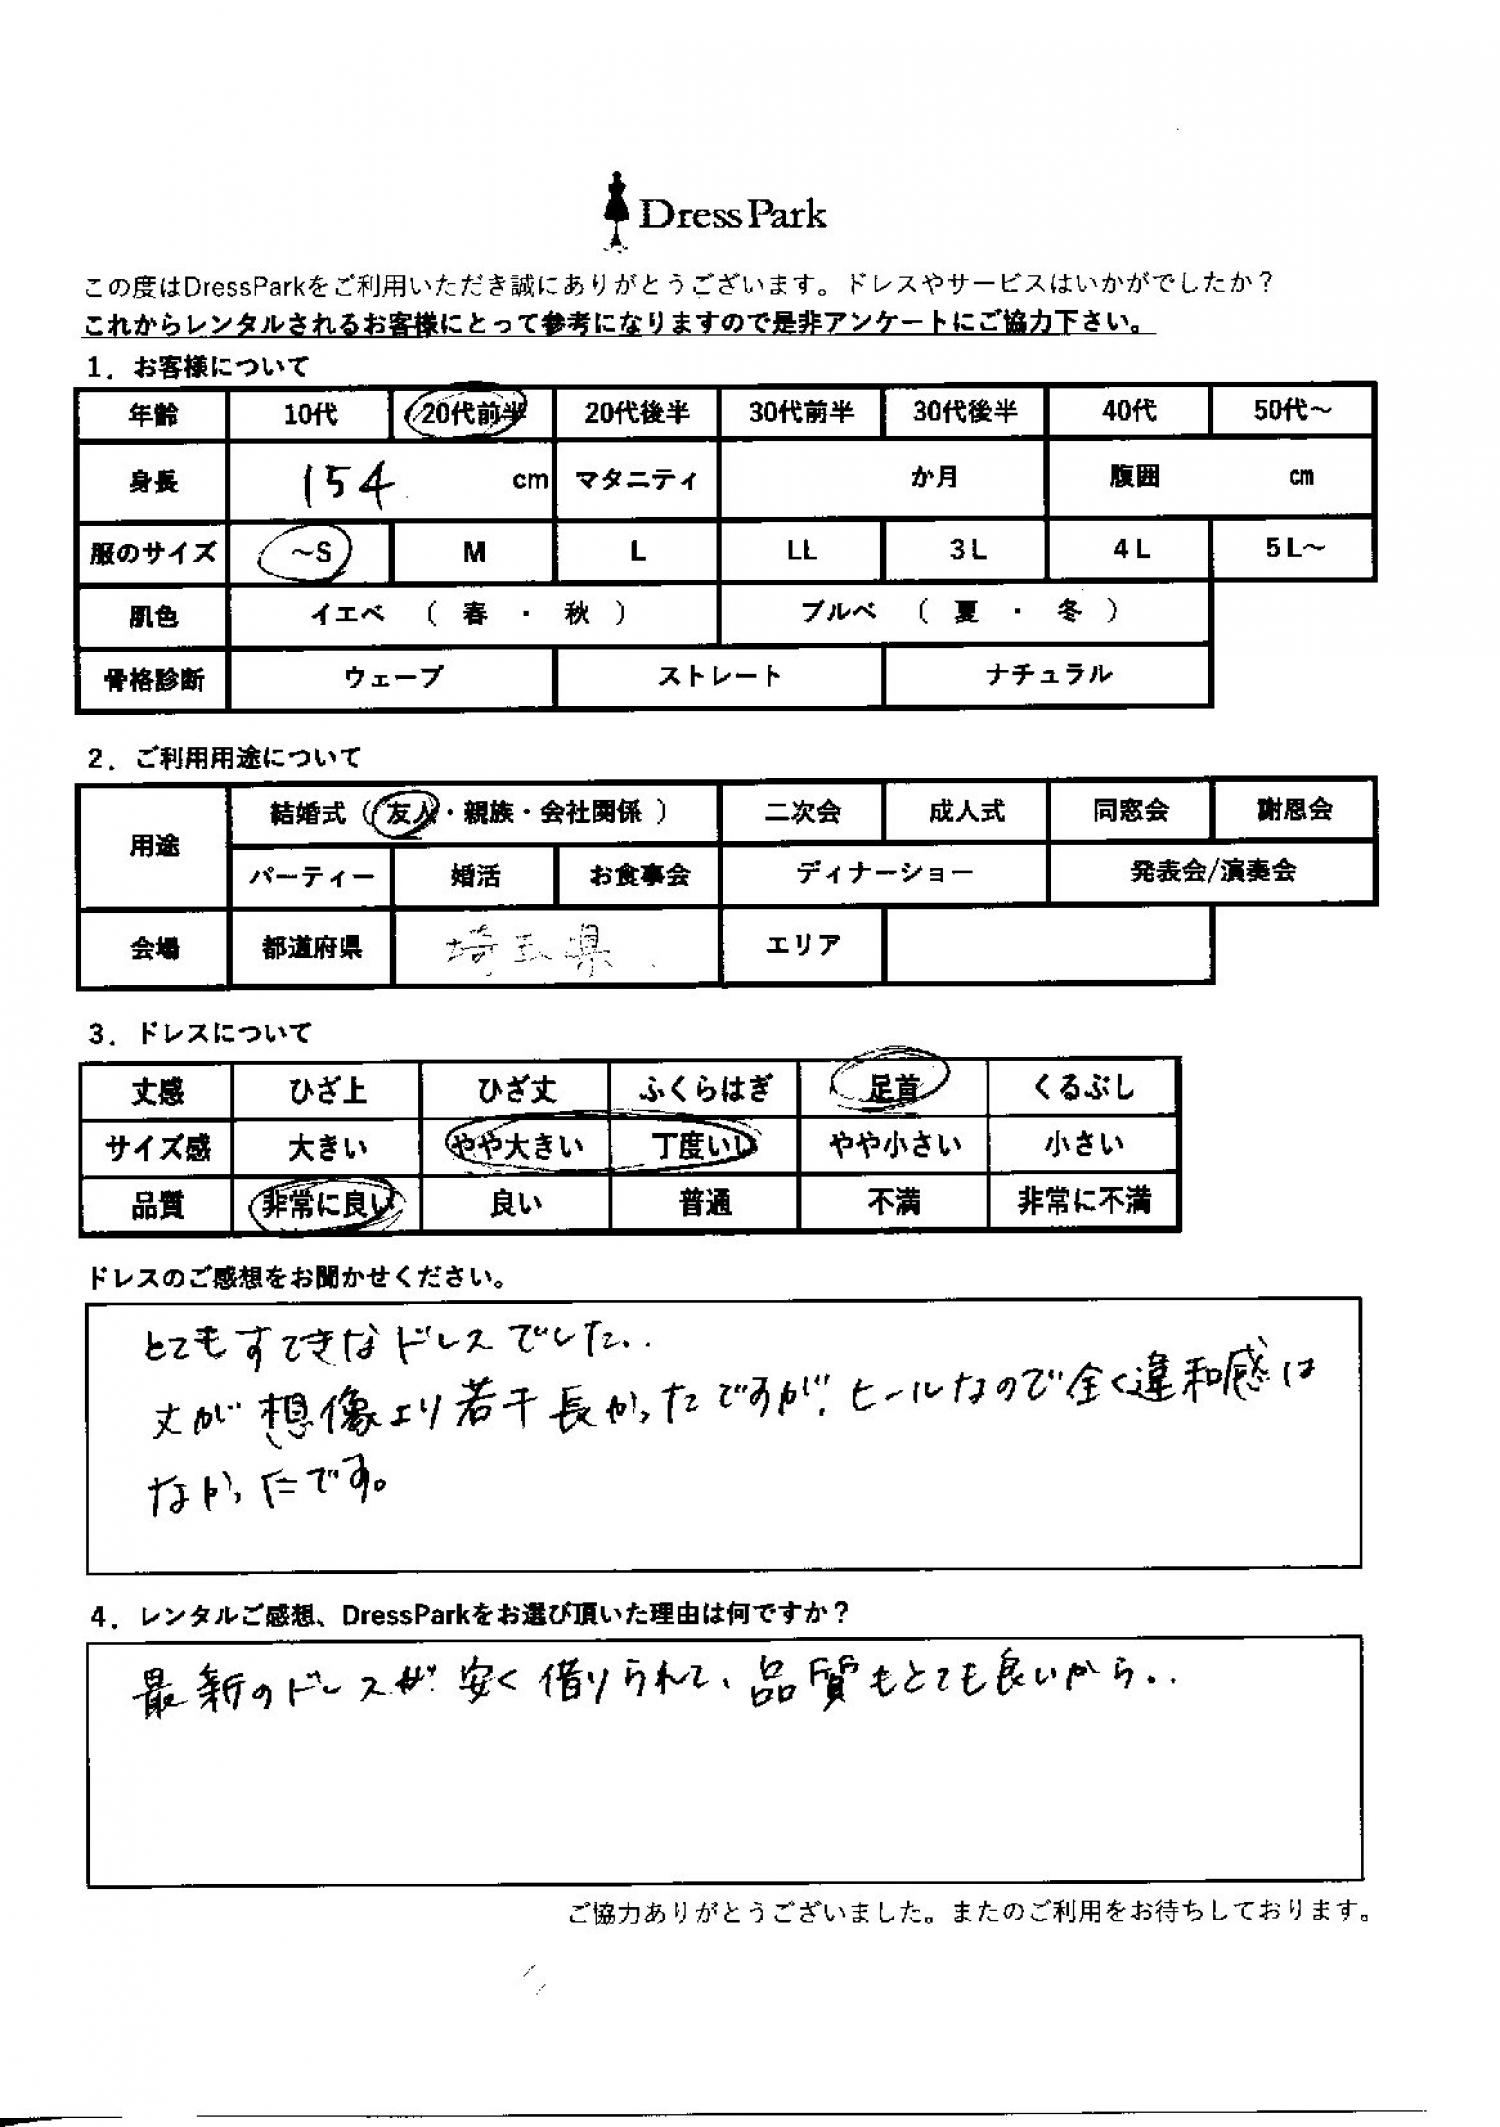 DressPark
この度はDressParkをご利用いただき誠にありがとうございます。ドレスやサービスはいかがでしたか？
これからレンタルされるお客様にとって参考になりますので是非アンケートにご協力下さい。
1．お客様について
年齢 10代 20代前半 20代後半 30代前半 30代後半 40代 50代～
身長 154 cm マタニティ か月 腹囲 cm
服のサイズ ～S M L LL 3L 4L 5L～
肌色 イエベ （ 春 ・ 秋 ） ブルベ （ 夏 ・ 冬 ）
骨格診断 ウェーブ ストレート ナチュラル
2．ご利用用途について
用途 結婚式（ 友人・親族・会社関係 ） 二次会 成人式 同窓会 謝恩会
パーティー 婚活 お食事会 ディナーショー 発表会/演奏会
会場 都道府県 埼玉県 エリア
3．ドレスについて
丈感 ひざ上 ひざ丈 ふくらはぎ 足首 くるぶし
サイズ感 大きい やや大きい 丁度いい やや小さい 小さい
品質 非常に良い 良い 普通 不満 非常に不満
ドレスのご感想をお聞かせください。
とてもすてきなドレスでした..
丈が想像より若干長かったですが、ヒールなので全く違和感は
なかったです。
4．レンタルご感想、DressParkをお選び頂いた理由は何ですか？
最新のドレスが安く借りられて、品質もとても良いから..
ご協力ありがとうございました。またのご利用をお待ちしております。